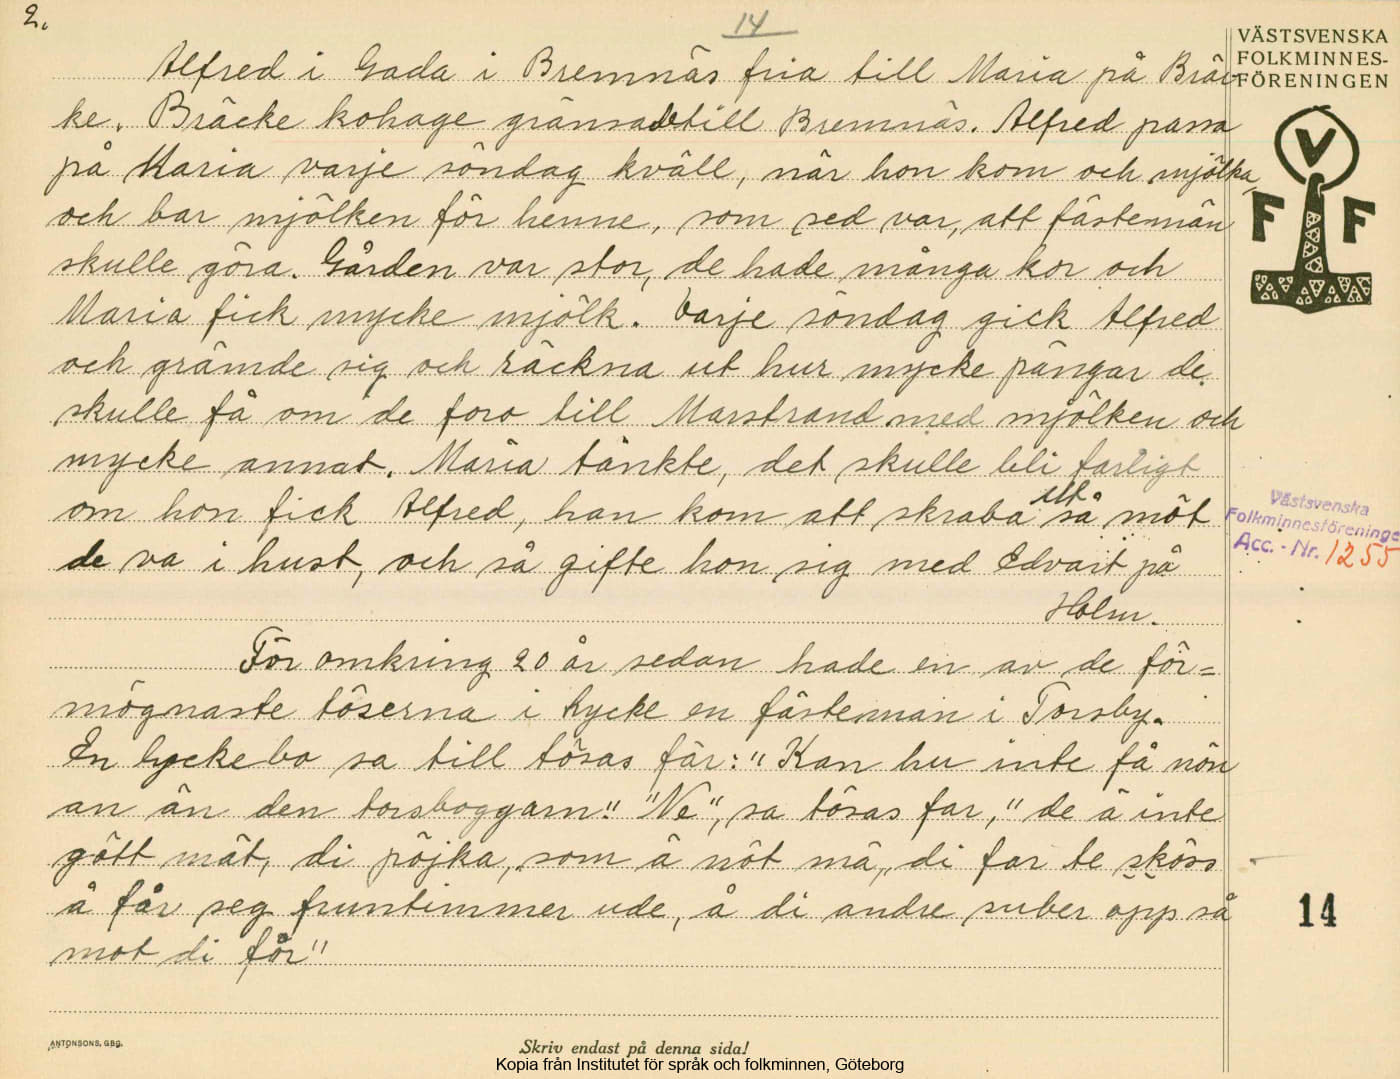 2.
14
VÄSTSVENSKA
FOLKMINNES-
FÖRENINGEN
V
F F
Alfred i Gada i Bremnäs fria till Maria på Bräc-
ke. Bräcke kohage gränsade till Bremnäs. Alfred passa
på Maria varje söndag kväll, när hon kom och mjölka,
och bar mjölken för henne, som sed var, att fästemän
skulle göra. Gården var stor, de hade många kor och
Maria fick mycke mjölk. Varje söndag gick Alfred
och grämde sig och räckna ut hur mycke pängar de
skulle få om de foro till Marstrand med mjölken och
mycke annat. Maria tänkte, det skulle bli farligt
om hon fick Alfred, han kom att skraba utt så möt
de va i hust, och så gifte hon sig med Edvart på
Holm.
För omkring 20 år sedan hade en av de för=
mögnaste töserna i tycke en fästeman i Torsby.
En lyckebo sa till tösas far: "Kan hu inte få nön
an än den torsboggarn". "Ne", sa tösas far, "de ä inte
gött mät, di pöjka, som ä nöt mä, di far te sköss
å får seg fruntimmer ude, å di andre suber opp så
mot di får"
Västsvenska
Folkminnesföreninge
Acc. - Nr. 1255
14
ANTONSONS, GBG.
Skriv endast på denna sida!
Kopia från Institutet för språk och folkminnen, Göteborg